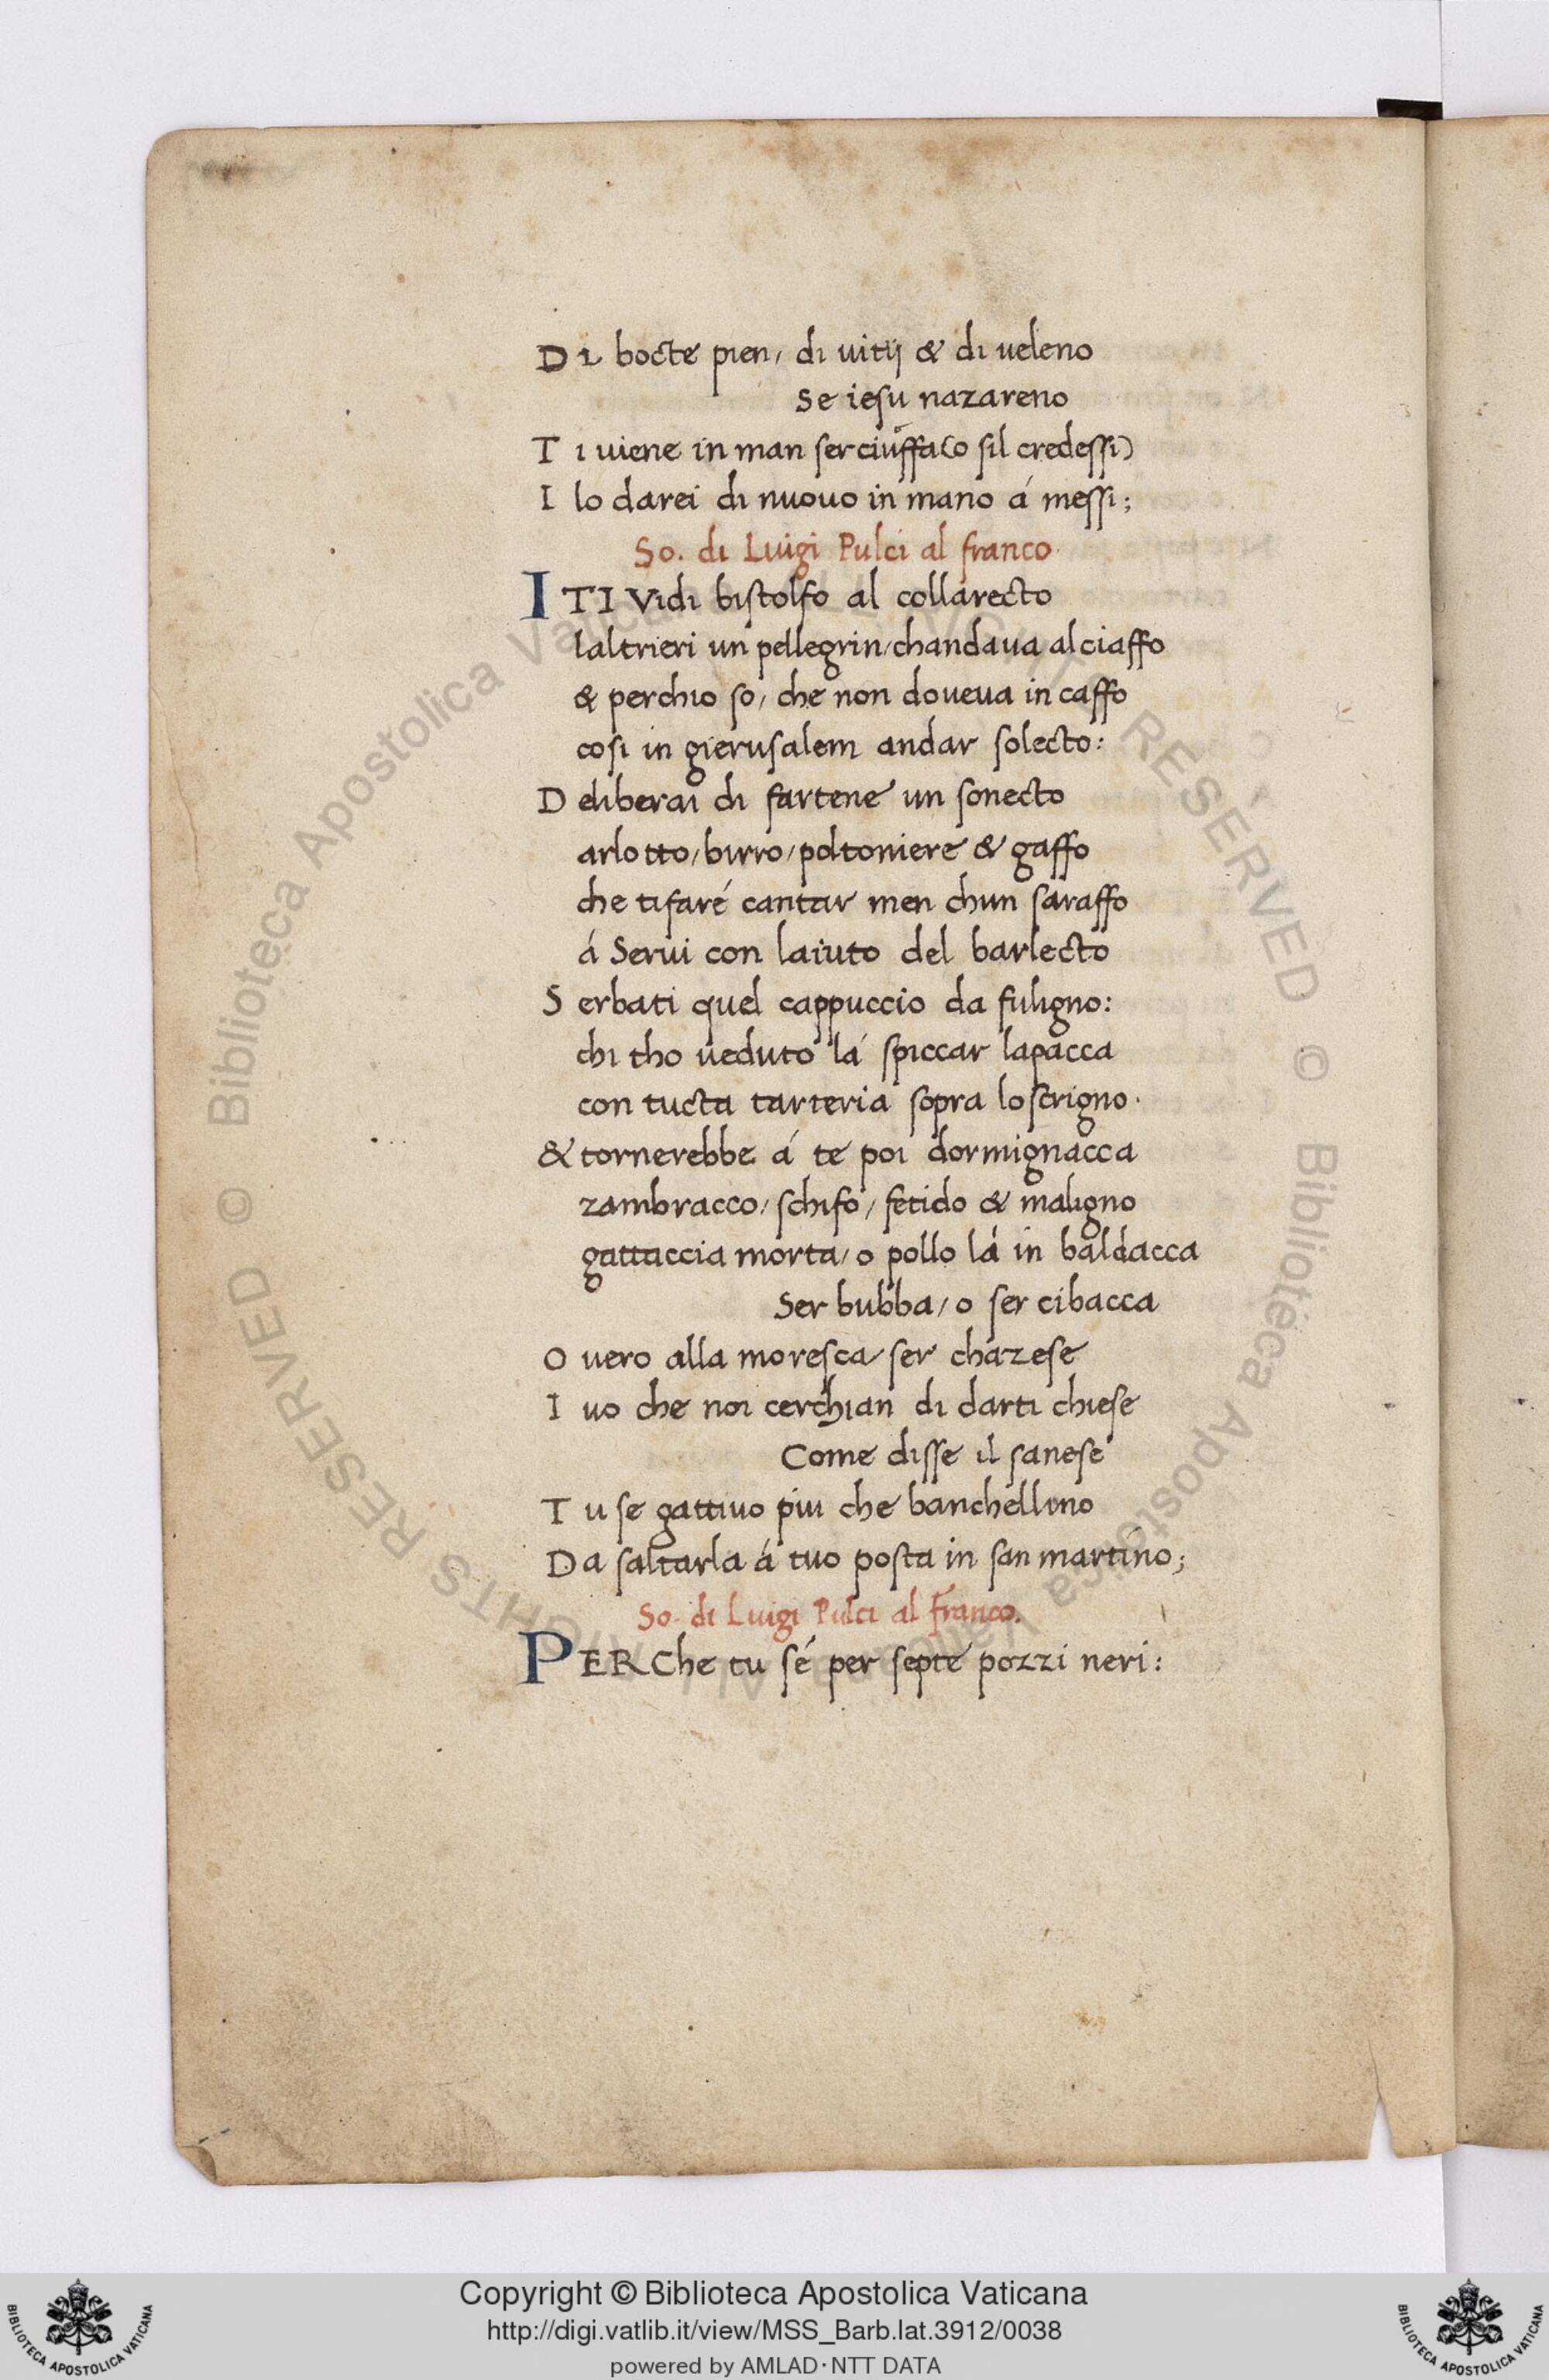 Di bocte pien, di uitij & di ueleno
Se iesu nazareno
Ti uiene in man ser ciuffa (o sil credessi)
I lo darei di nuouo in mano á messi;
So. di Luigi Pulci al franco.
ITI Vidi bistolfo al collarecto
laltrieri un pellegrin, chandaua al ciaffo
& perchio so, che non doueua in caffo
cosi in gierusalem andar solecto:
Deliberai di fartene un sonecto
arlotto, birro, poltoniere & gaffo
che ti faré cantar men chun saraffo
á Serui con laiuto del barlecto
Serbati quel cappuccio da fuligno:
chi tho ueduto lá spiccar lapacca
con tucta tarteria sopra lo scrigno.
& tornerebbe á te poi dormignacca
zambracco, schifo, fetido & maligno
gattaccia morta, o pollo lá in baldacca
Ser bubba, o ser cibacca
O uero alla moresca ser chazese
I uo che noi cerchian di darti chiese
Come disse il sanese
Tu se gattiuo piu che banchellino
Da saltarla á tuo posta in san martino;
So. di Luigi Pulci al franco.
PERChe tu sé per septe pozzi neri:
© Biblioteca Apostolica Vaticana ALL RIGHTS RESERVED © Biblioteca Apostolica Vaticana ALL RIGHTS RESERVED
Copyright © Biblioteca Apostolica Vaticana
http://digi.vatlib.it/view/MSS_Barb.lat.3912/0038
powered by AMLAD·NTT DATA
BIBLIOTECA APOSTOLICA VATICANA
BIBLIOTECA APOSTOLICA VATICANA